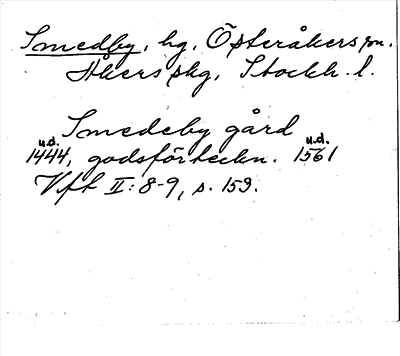 Smedby, hg, Österåkers sn.
Åkers skg, Stockh. l.
Smedeby gård
u.d. u.d.
1444, godsförteckn. 1561
Vfl II: 8-9, s. 153.